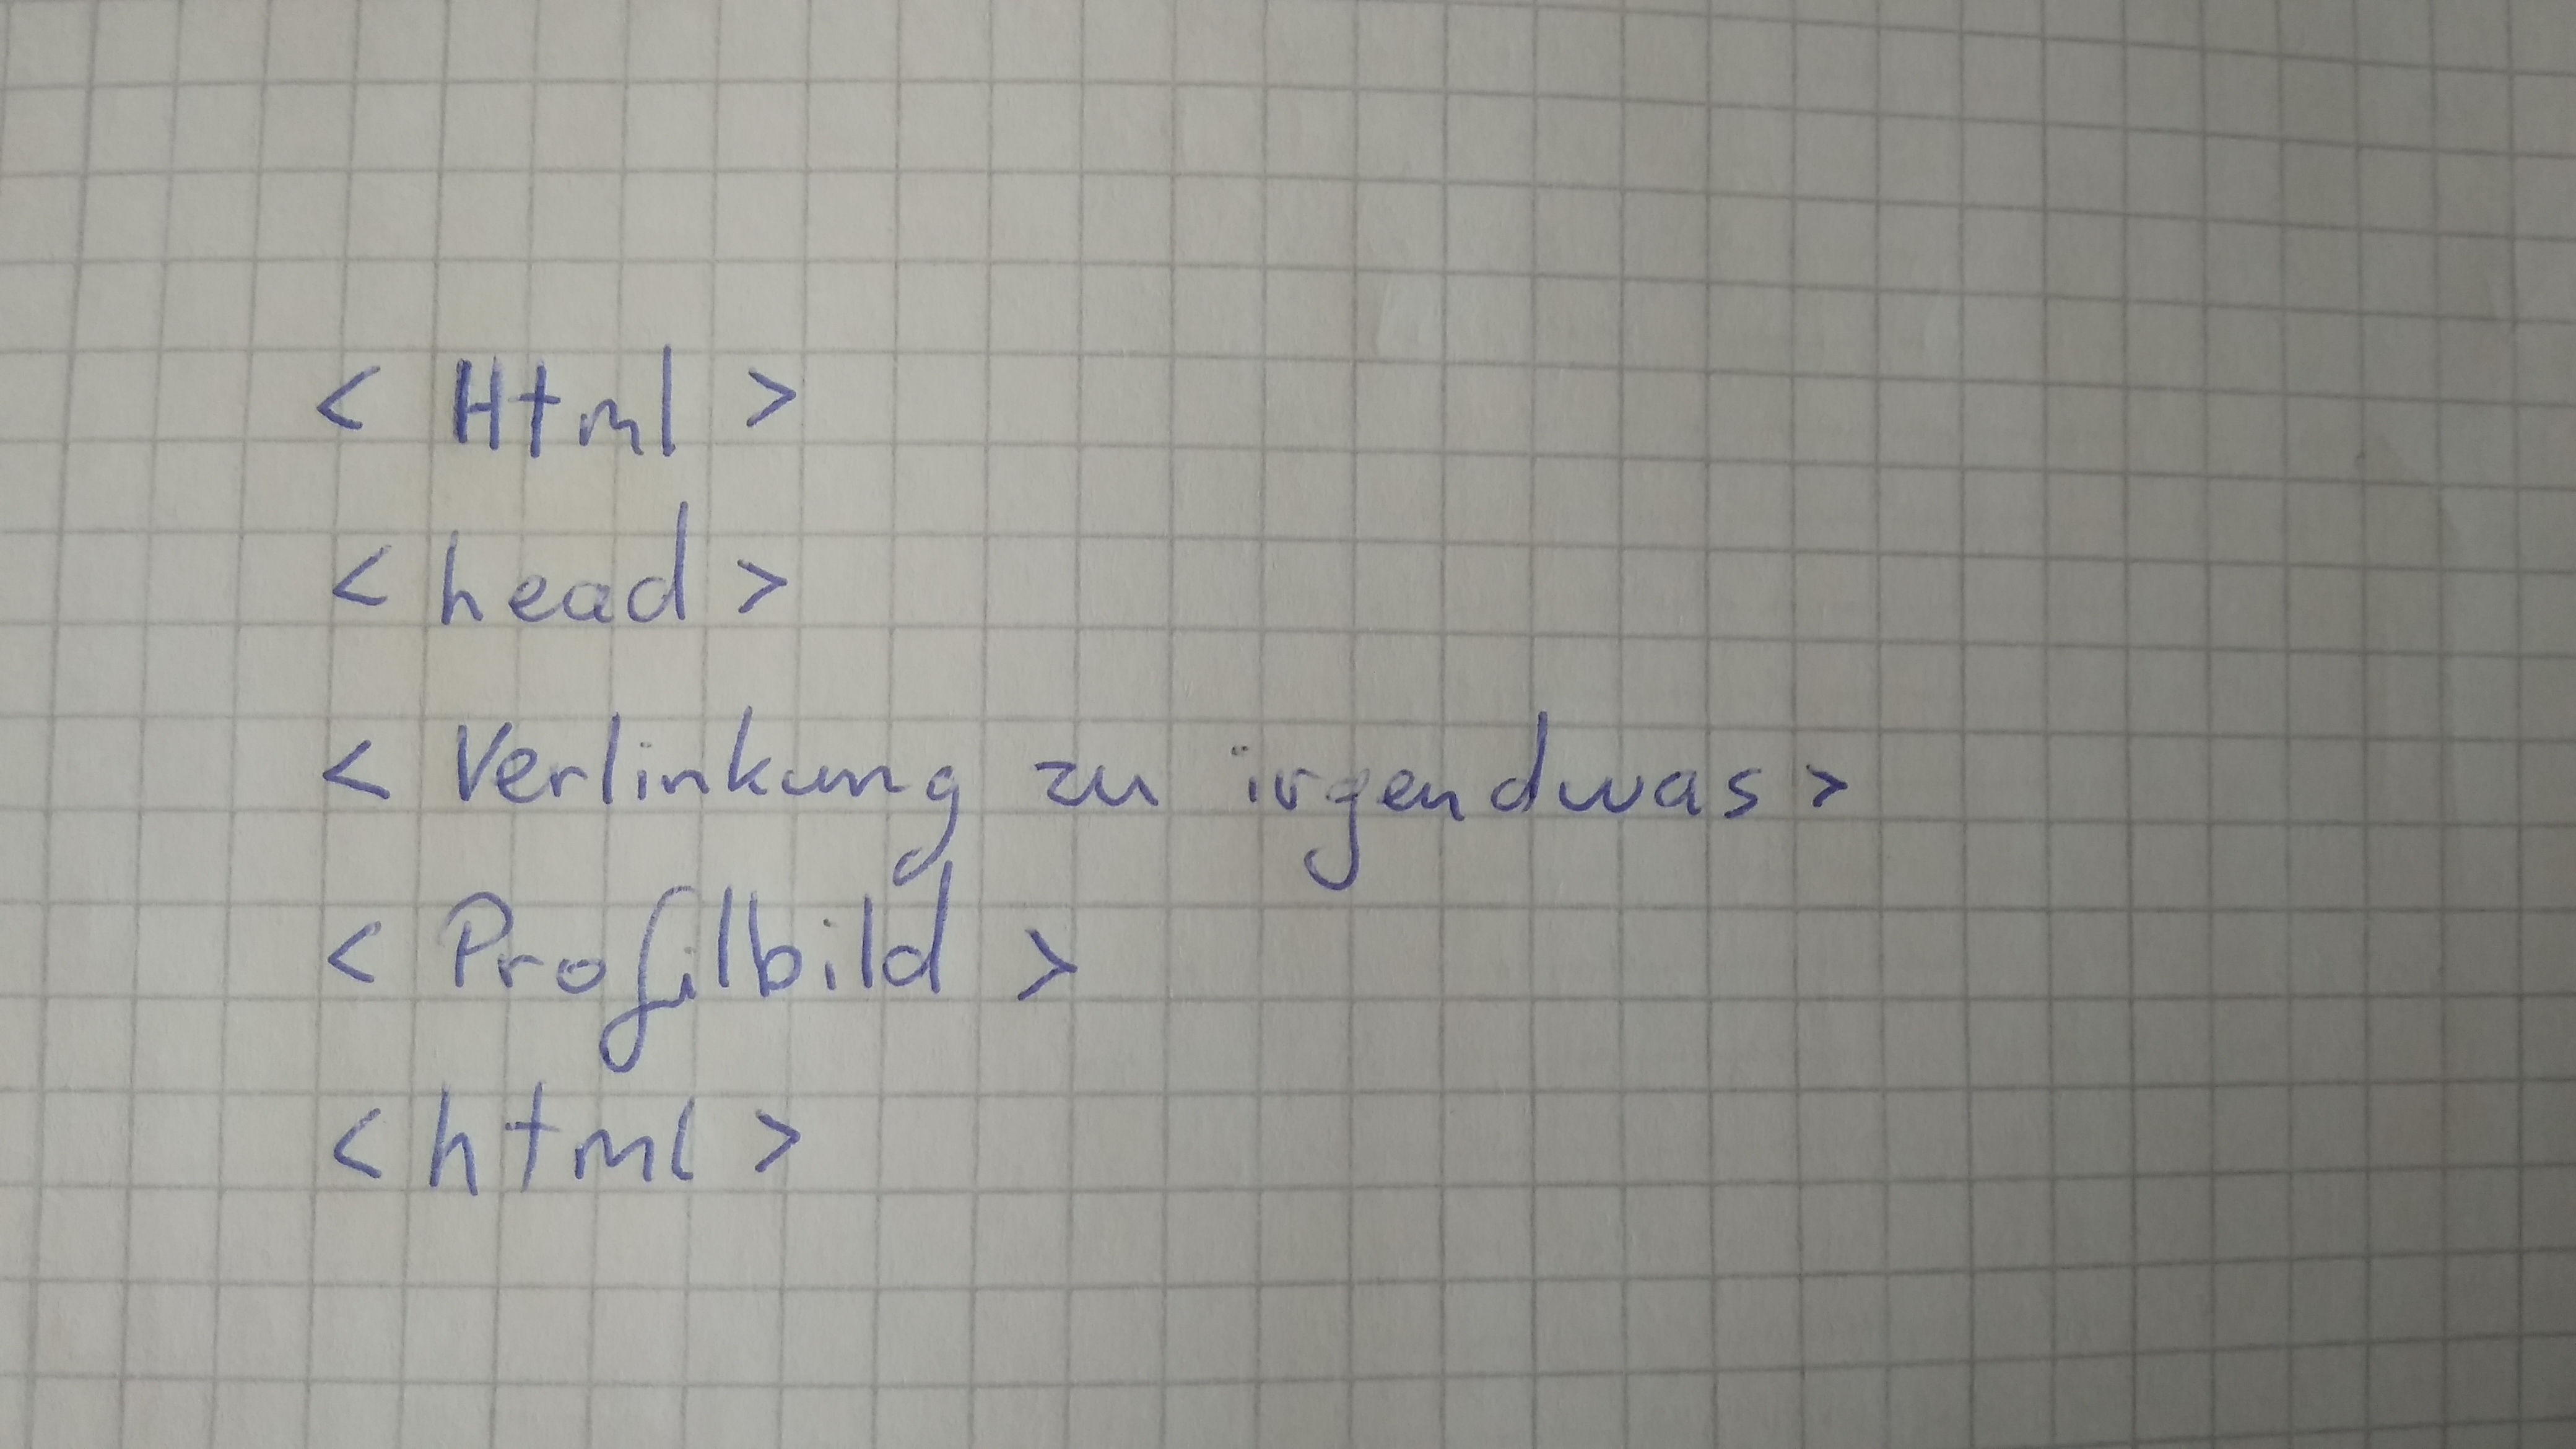 < Html >
< head >
< Verlinkung zu irgendwas >
< Profilbild >
< html >